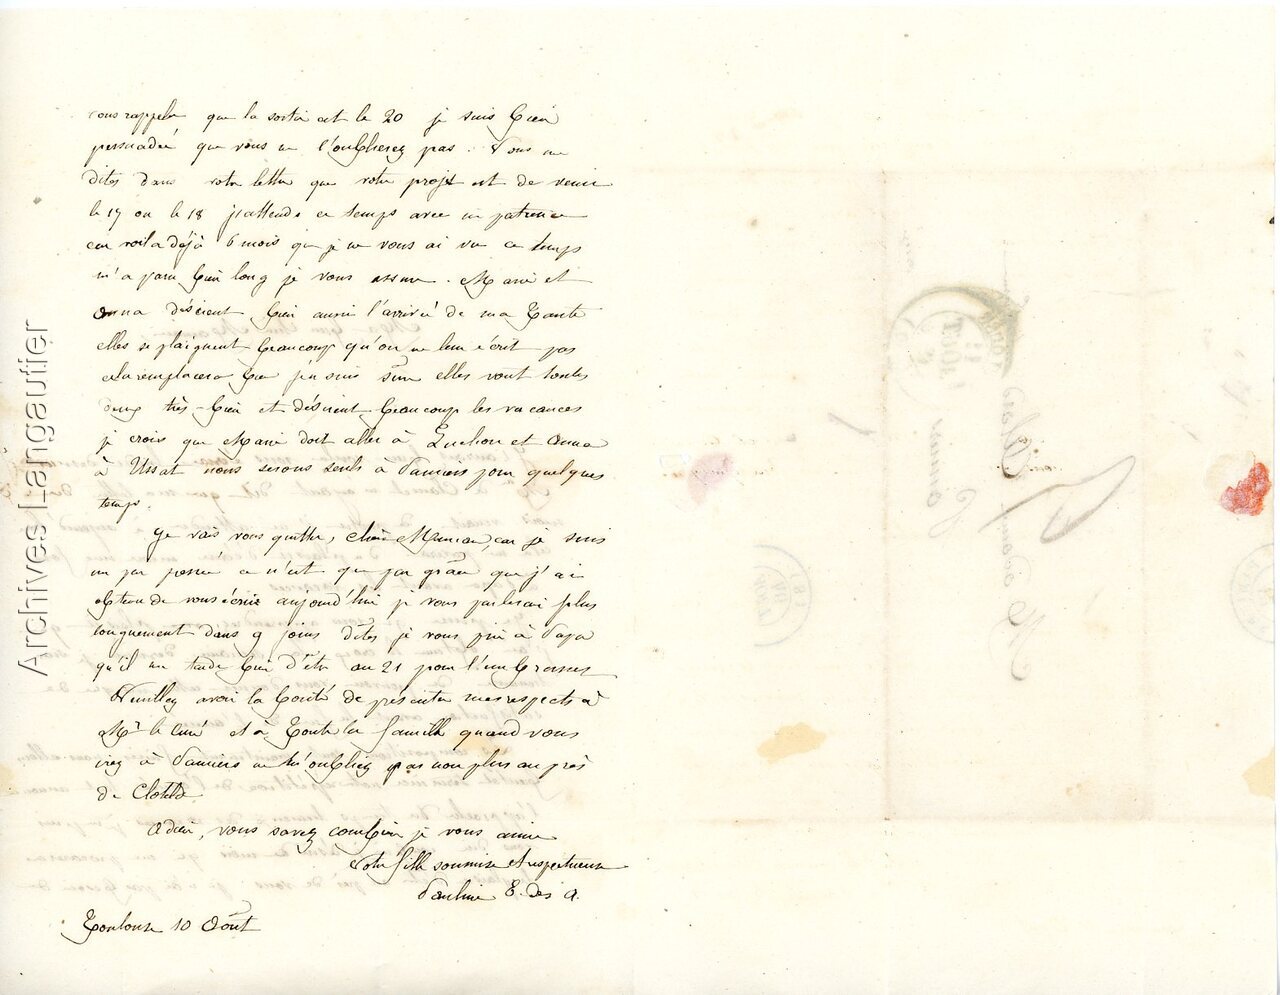 vous rappeler que la sortie est le 20 je suis bien
persuadée que vous ne l'oublierez pas. Vous me
dites dans votre lettre que votre projet est de venir
le 17 ou le 18 j'attends ce temps avec impatience
car voila déjà 6 mois que je ne vous ai vu ce temps
m'a paru bien long je vous assure. Marie et
Anna désirent bien aussi l'arrivée de ma Tante
elles se plaignent beaucoup qu'on ne leur écrit pas
cela remplacera bien j'en suis sûre elles vont toutes
deux très-bien et désirent beaucoup les vacances
je crois que Marie doit aller à Luchon et Anna
à Ussat nous serons seuls à Pamiers pour quelques
temps.
Je vais vous quitter, chère Maman, car je suis
un peu pressée ce n'est que par grâce que j'ai
obtenu de vous écrire aujourd'hui je vous parlerai plus
longuement dans 9 jours dites je vous prie à Papa
qu'il me tarde bien d'être au 21 pour l'embrasser
Veuillez avoir la bonté de présenter mes respects à
Mr le Curé et à toute la famille quand vous
irez à Pamiers ne m'oubliez pas non plus auprès
de Clotilde
Adieu, vous savez combien je vous aime
Votre fille soumise et respectueuse
Pauline E. des A.
Toulouse 10 Août
Archives Langautier